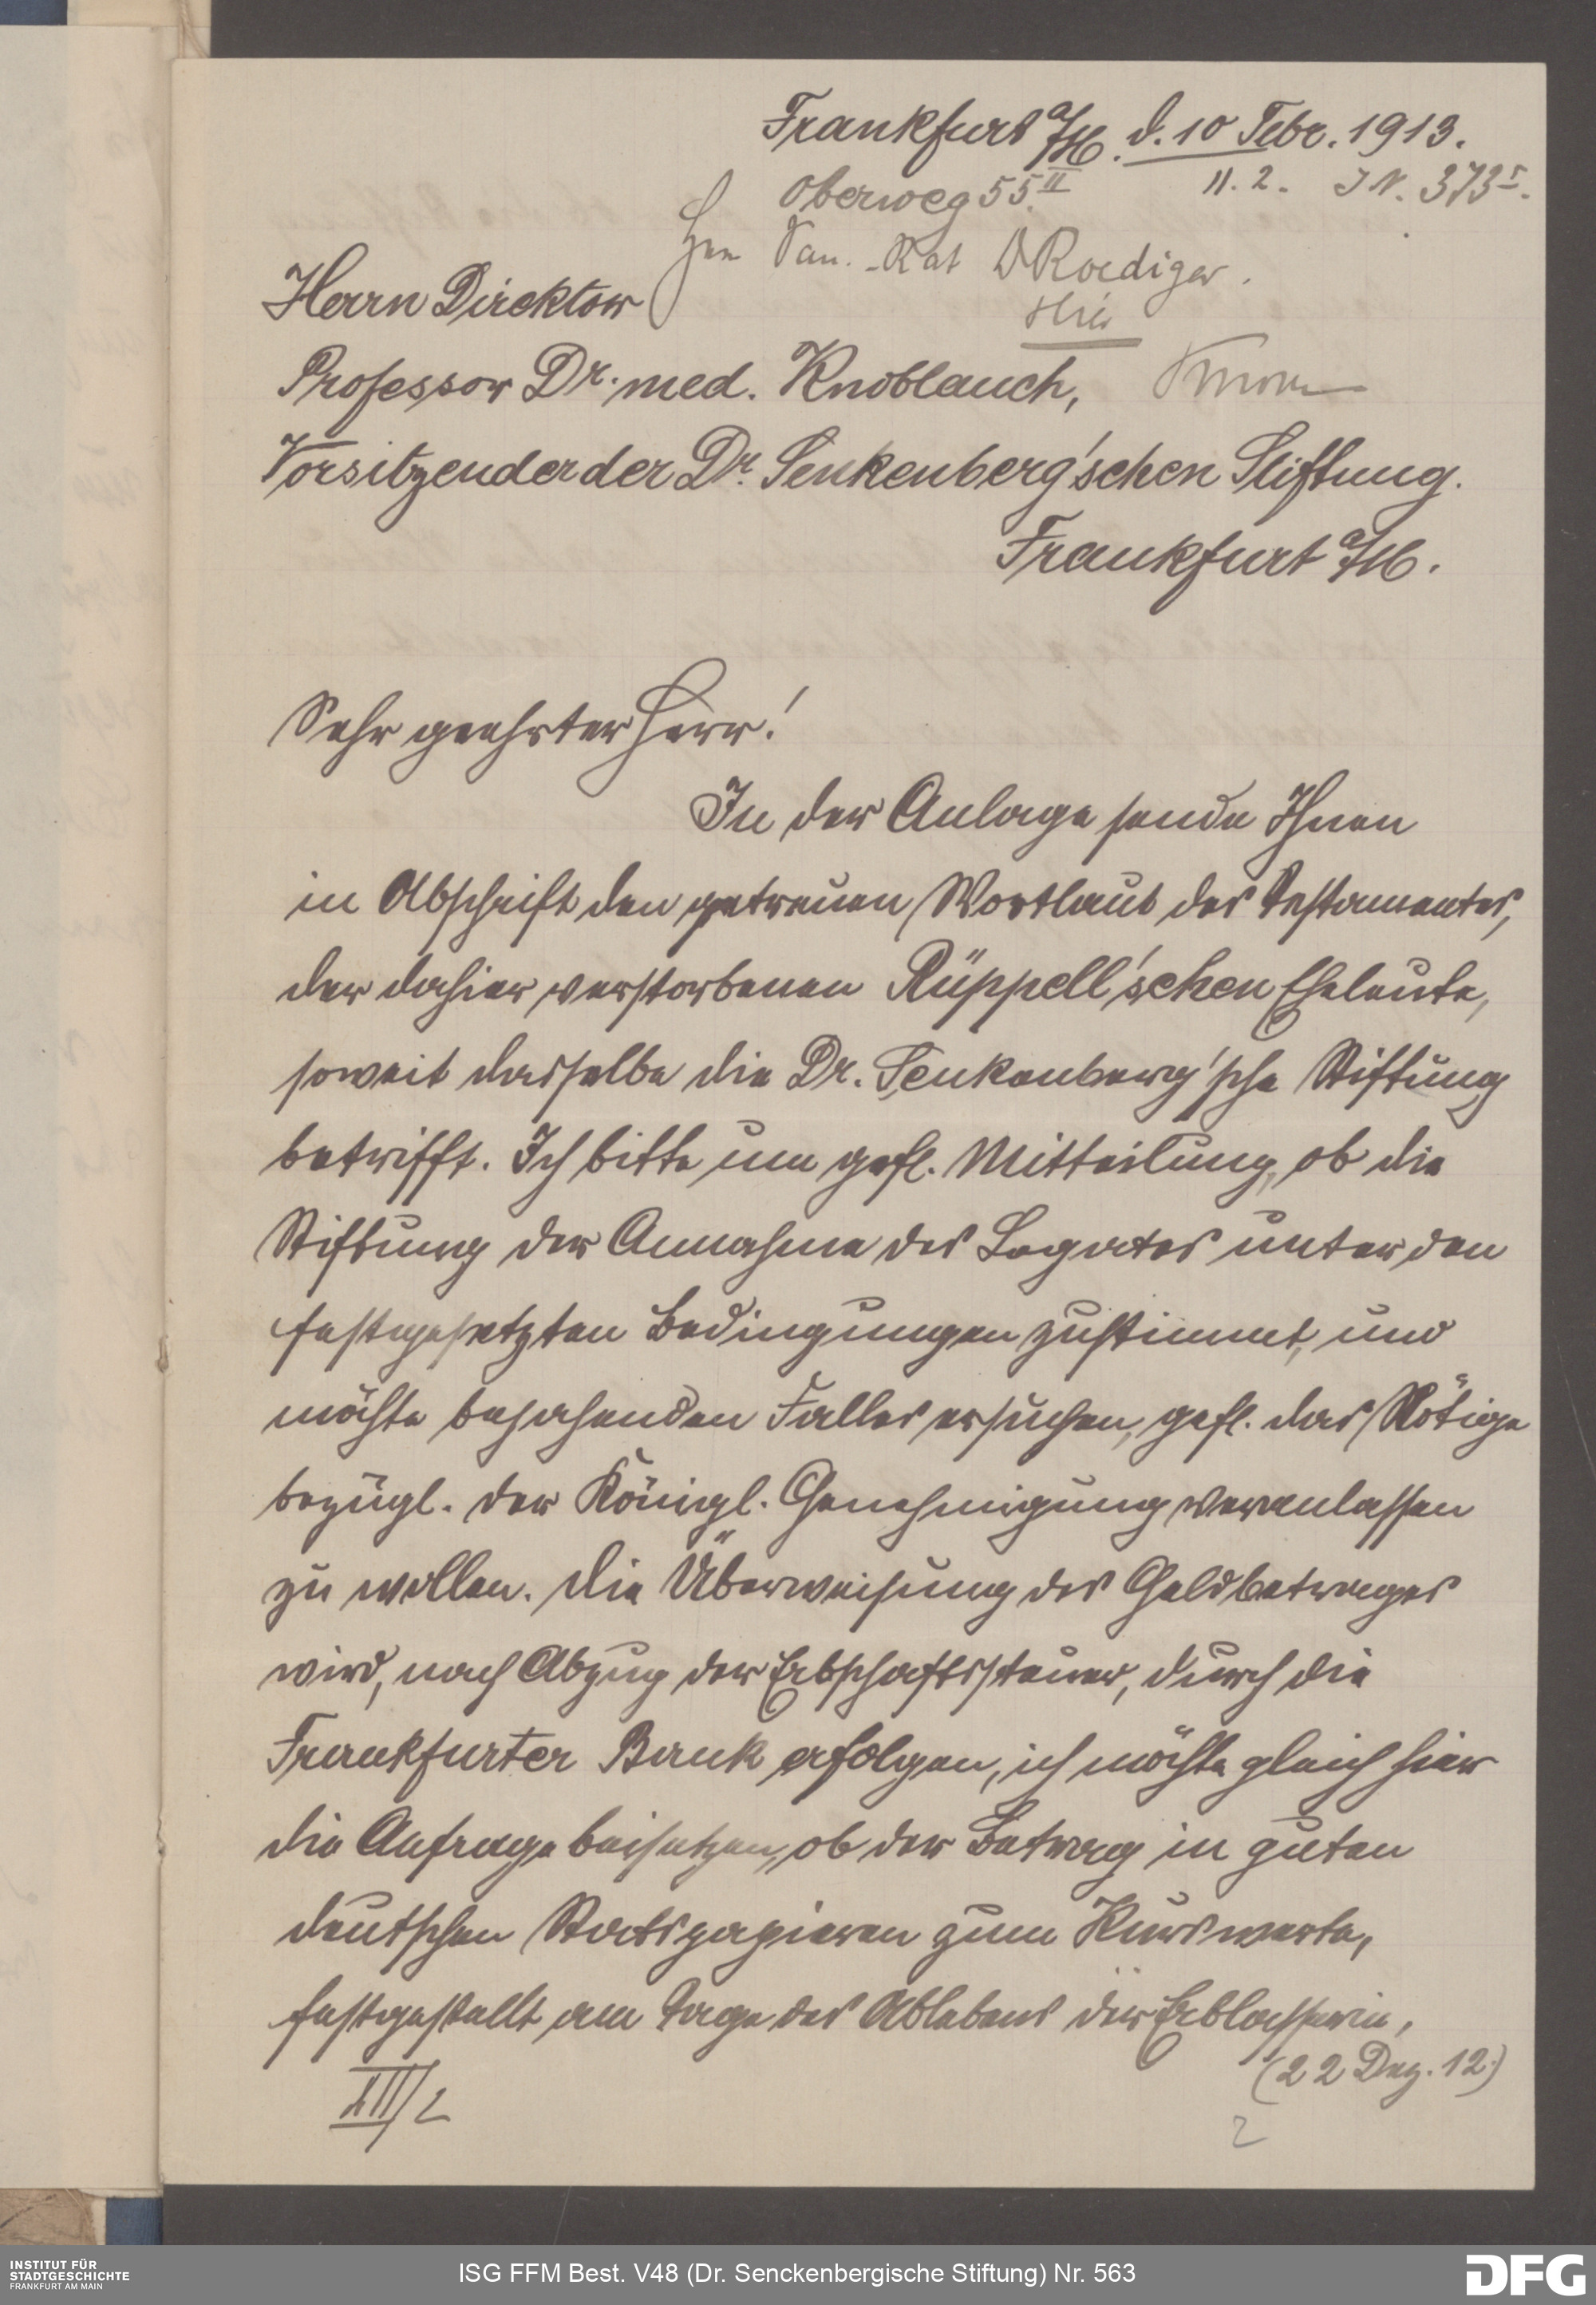 Frankfurt a/M. d. 10 Febr. 1913.
Oberweg 55 II
11. 2. J N. 373 I.
Hrn San.-Rat Dr Roediger.
Hier
Herrn Direktor
Professor Dr. med. Knoblauch,
Vorsitzender der Dr. Senkenberg'schen Stiftung.
Frankfurt a/M.
Sehr geehrter Herr!
In der Anlage sende Ihnen
in Abschrift den getreuen Wortlaut des Testamentes,
der dahier verstorbenen Rüppell'schen Eheleute,
soweit dasselbe die Dr. Senkenberg'sche Stiftung
betrifft. Ich bitte um gefl. Mitteilung, ob die
Stiftung der Annahme des Legates unter den
festgesetzten Bedingungen zustimmt, und
möchte bejahenden Falles ersuchen, gefl. das Nötige
bezügl. der Königl. Genehmigung veranlassen
zu wollen. Die Überweisung des Geldbetrages
wird, nach Abzug der Erbschaftssteuer, durch die
Frankfurter Bank erfolgen, ich möchte gleich hier
die Anfrage beisetzen, ob der Betrag in guten
deutschen Statspapieren zum Kurswerte,
festgestellt am Tage des Ablebens der Erblasserin,
(22 Dez. 12.)
2
INSTITUT FÜR
STADTGESCHICHTE
FRANKFURT AM MAIN
ISG FFM Best. V48 (Dr. Senckenbergische Stiftung) Nr. 563
DFG